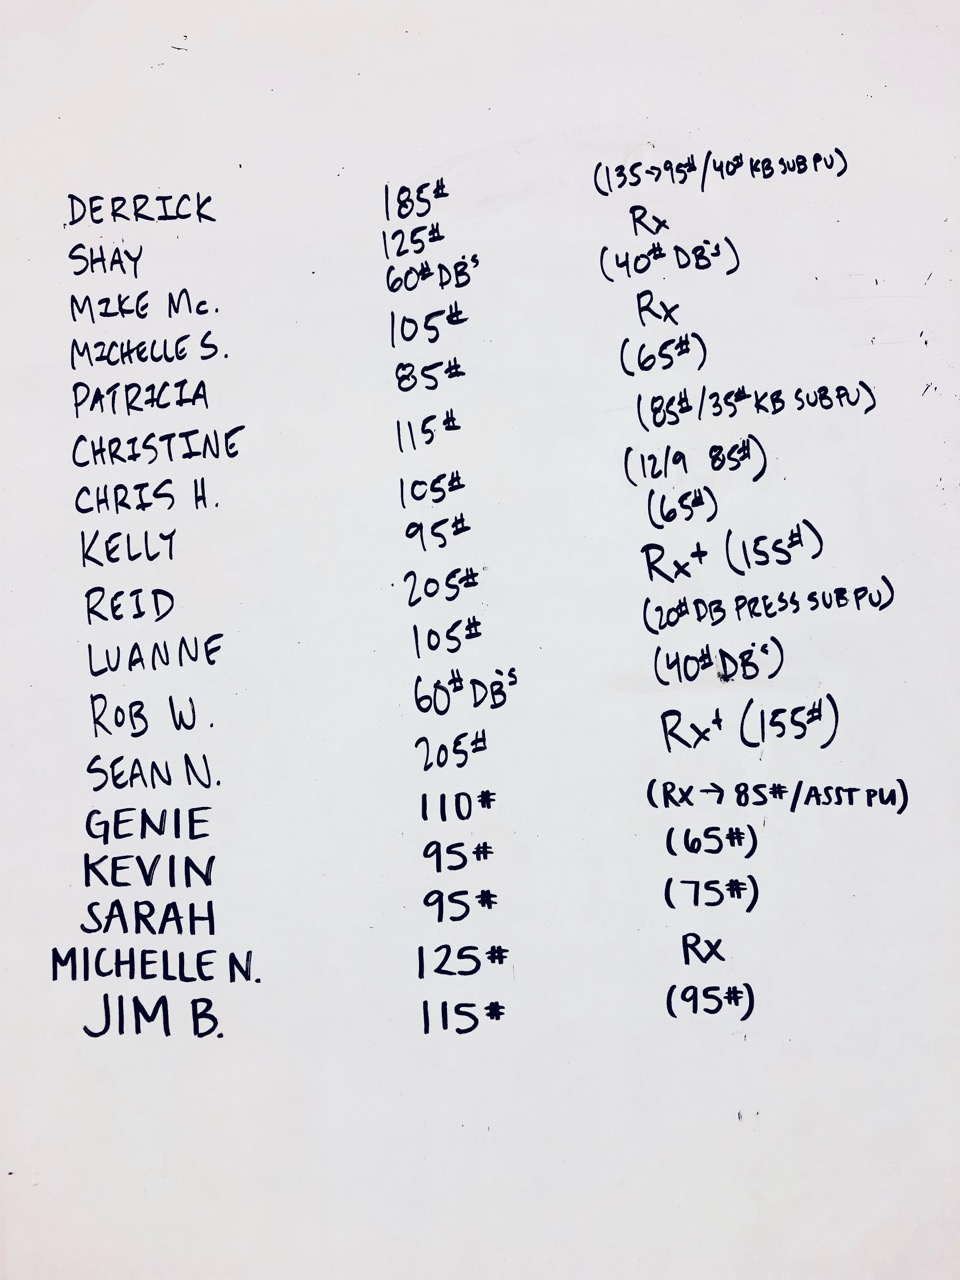 DERRICK 185# (135→95#/40# KB SUB PU)
SHAY 125# Rx
MIKE Mc. 60# DB's (40# DB's)
MICHELLE S. 105# Rx
PATRICIA 85# (65#)
CHRISTINE 115# (85#/35# KB SUB PU)
CHRIS H. 105# (12/9 85#)
KELLY 95# (65#)
REID 205# Rx+ (155#)
LUANNE 105# (20# DB PRESS SUB PU)
ROB W. 60# DB's (40# DB's)
SEAN N. 205# Rx+ (155#)
GENIE 110# (RX→85#/ASST PU)
KEVIN 95# (65#)
SARAH 95# (75#)
MICHELLE N. 125# RX
JIM B. 115# (95#)